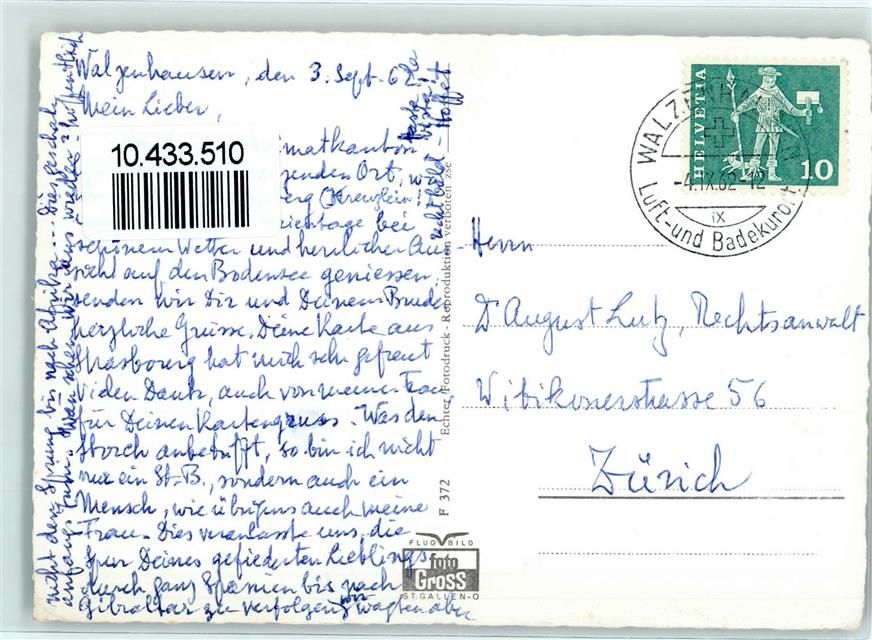 Walzenhausen, den 3. Sept. 62
Mein Lieber,
10.433.510
imatkanton
enden Ort, w
erg (Kreuzlein!
ientage bei
schönem Wetter und herrlicher Aus-
sicht auf den Bodensee geniessen,
senden wir Dir und Deinem Bruder
herzliche Grüsse. Deine Karte aus
Strasbourg hat mich sehr gefreut
Dank, auch von meiner Frau
für Deinen Kartengruss. Was den
Storch anbetrifft, so bin ich nicht
nur ein St.-B., sondern auch ein
Mensch, wie übrigens auch meine
Frau. Dies veranlasste uns, die
Spur Deines gefiederten Lieblings
durch ganz Spanien bis nach
Gibraltar zu verfolgen, wir wagten aber
nicht den Sprung bis nach Afrika... Dies geschah
anfangs Juni. sehen wir uns wieder? hoffentlich
Echter Fotodruck - Reproduktion verboten
F 372
FLUGBILD
foto
GROSS
ST. GALLEN-O
HELVETIA
10
WALZENHAUSEN
-4.IX.62-12
IX
Luft- und Badekurort
Herrn
Dr August Lutz, Rechtsanwalt
Wibikonerstrasse 56
Zürich